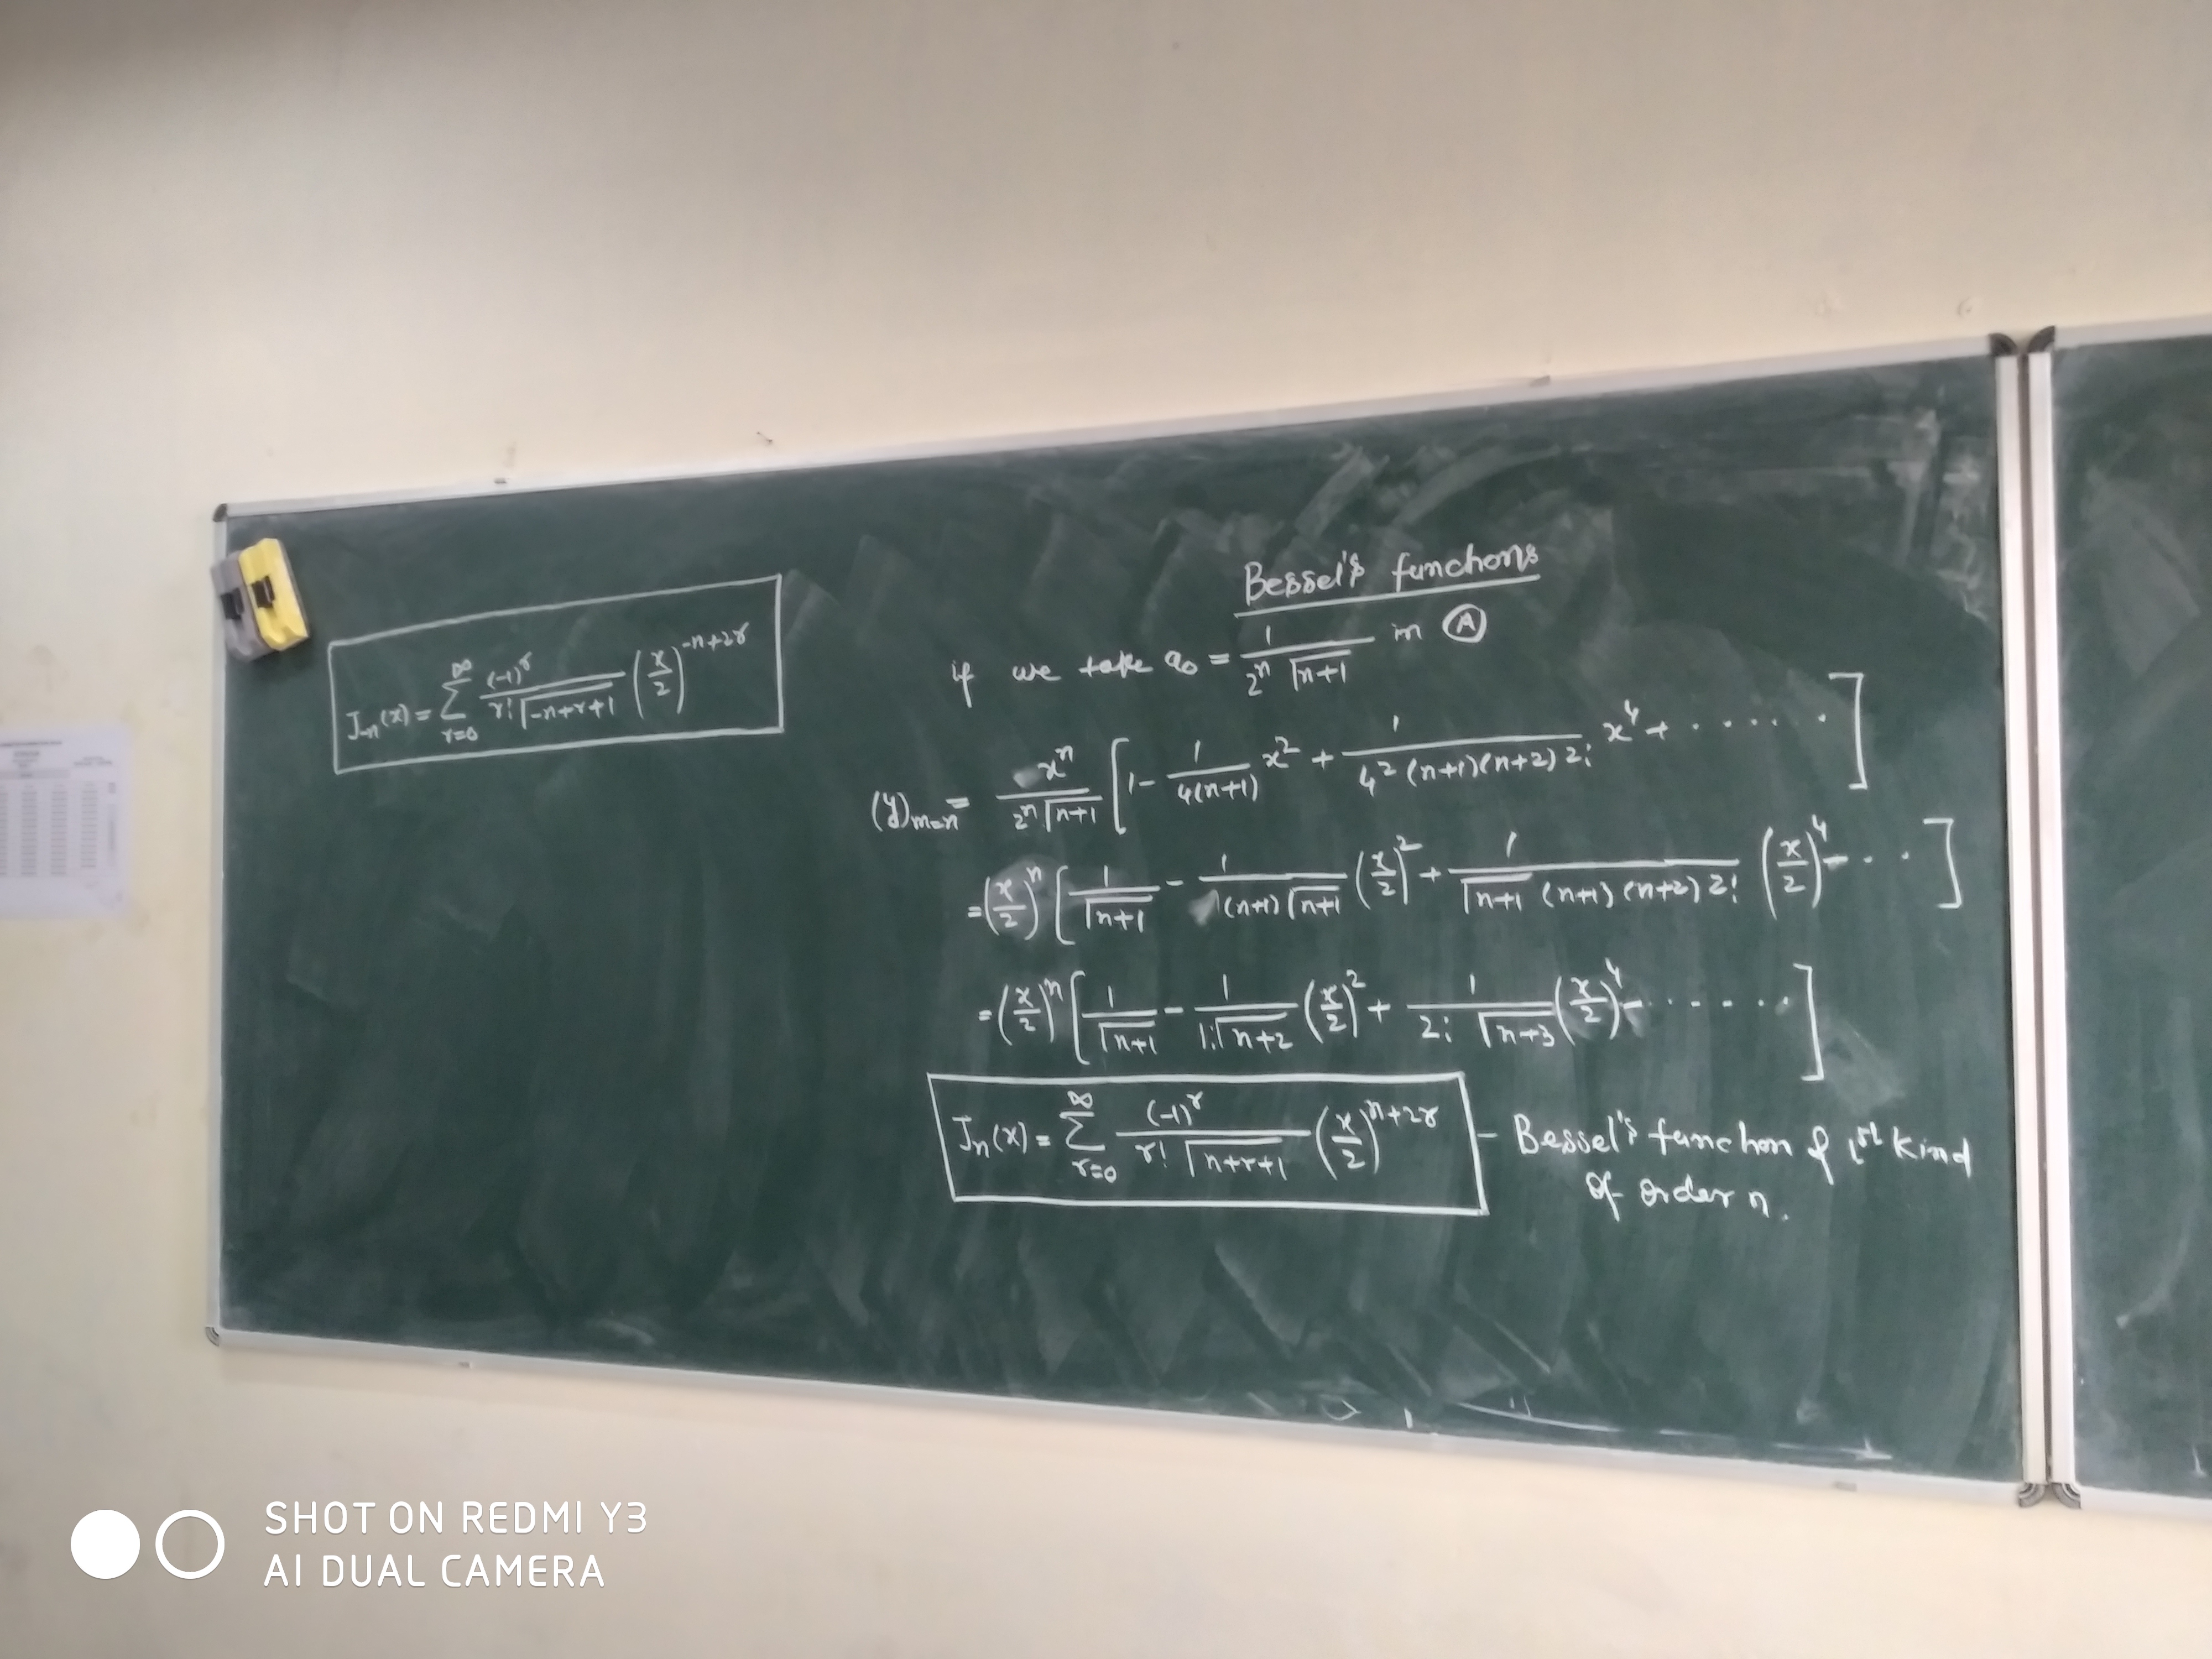 Bessel's functions
if we take a₀ = 1/(2ⁿ √n+1) in Ⓐ
(y)ₘ₌ₙ = xⁿ/(2ⁿ √n+1) [1 - 1/(4(n+1)) x² + 1/(4² (n+1)(n+2) 2!) x⁴ + ....... ]
= (x/2)ⁿ [1/√n+1 - 1/((n+1) √n+1) (x/2)² + 1/(√n+1 (n+1) (n+2) 2!) (x/2)⁴ - ... ]
= (x/2)ⁿ [1/√n+1 - 1/(1! √n+2) (x/2)² + 1/(2! √n+3) (x/2)⁴ - ...... ]
Jₙ(x) = ∑_{r=0}^{∞} (-1)^r/(r! √n+r+1) (x/2)^{n+2r} - Bessel's function of 1st kind
of order n.
J₋ₙ(x) = ∑_{r=0}^{∞} (-1)^r/(r! √-n+r+1) (x/2)^{-n+2r}
SHOT ON REDMI Y3
AI DUAL CAMERA